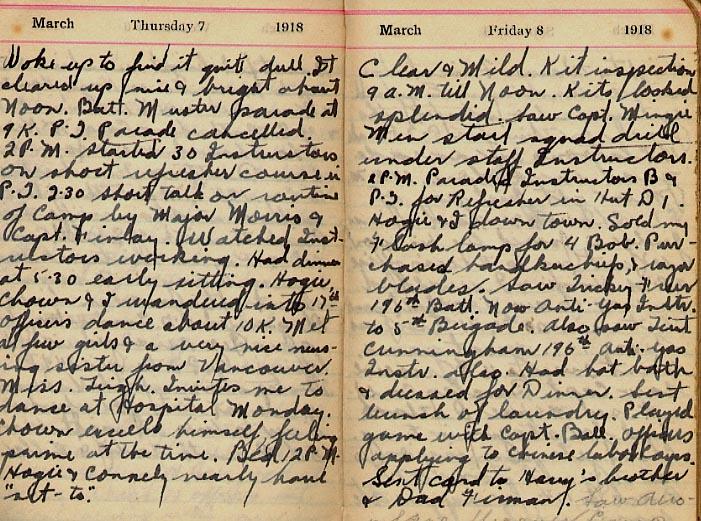 March Thursday 7 1918
Woke up to find it quite dull. It
cleared up nice & bright about
Noon. Batt. Muster parade at
9 K. P.T. Parade cancelled.
2 P.M. Started 30 Instructors
on short refresher course in
P.T. 2.30 short talk on routine
of Camp by Major Morris &
Capt. Finlay. Watched Inst-
ructors working. Had dinner
at 5.30 early sitting. Hogie,
Chown & I wandered into 17th
officers dance about 10 K. Met
a few girls & a very nice nurs-
ing sister from Vancouver
Miss. Leigh. Invites me to
dance at Hospital Monday.
Chown excells himself, feeling
prime at the time. Bed 12 P.M.
Hogie & Connely nearly have
"set-to."
March Friday 8 1918
Clear & Mild. Kit inspection
9 a.M. till Noon. Kits looked
splendid. Saw Capt. Mingie
Men start squad drill
under staff Instructors.
2 P.M. Parade Instructors B &
P.T. for Refresher in Hut D 1.
Hogie & I down town. Sold my
Flash lamp for 4 Bob. Pur-
chased handkerchiefs, & razor
blades. Saw
196th Batt. Now Anti-Gas Instr.
to 5th Brigade. Also saw Lieut
Cunningham 196th Anti-Gas
Instr. also. Had hot bath
& dressed for Dinner. Sent
bunch of laundry. Played
game with Capt. Ball. Officers
applying to Chinese labor Corps.
Sent card to Harry's brother
& Dad Firman. Saw